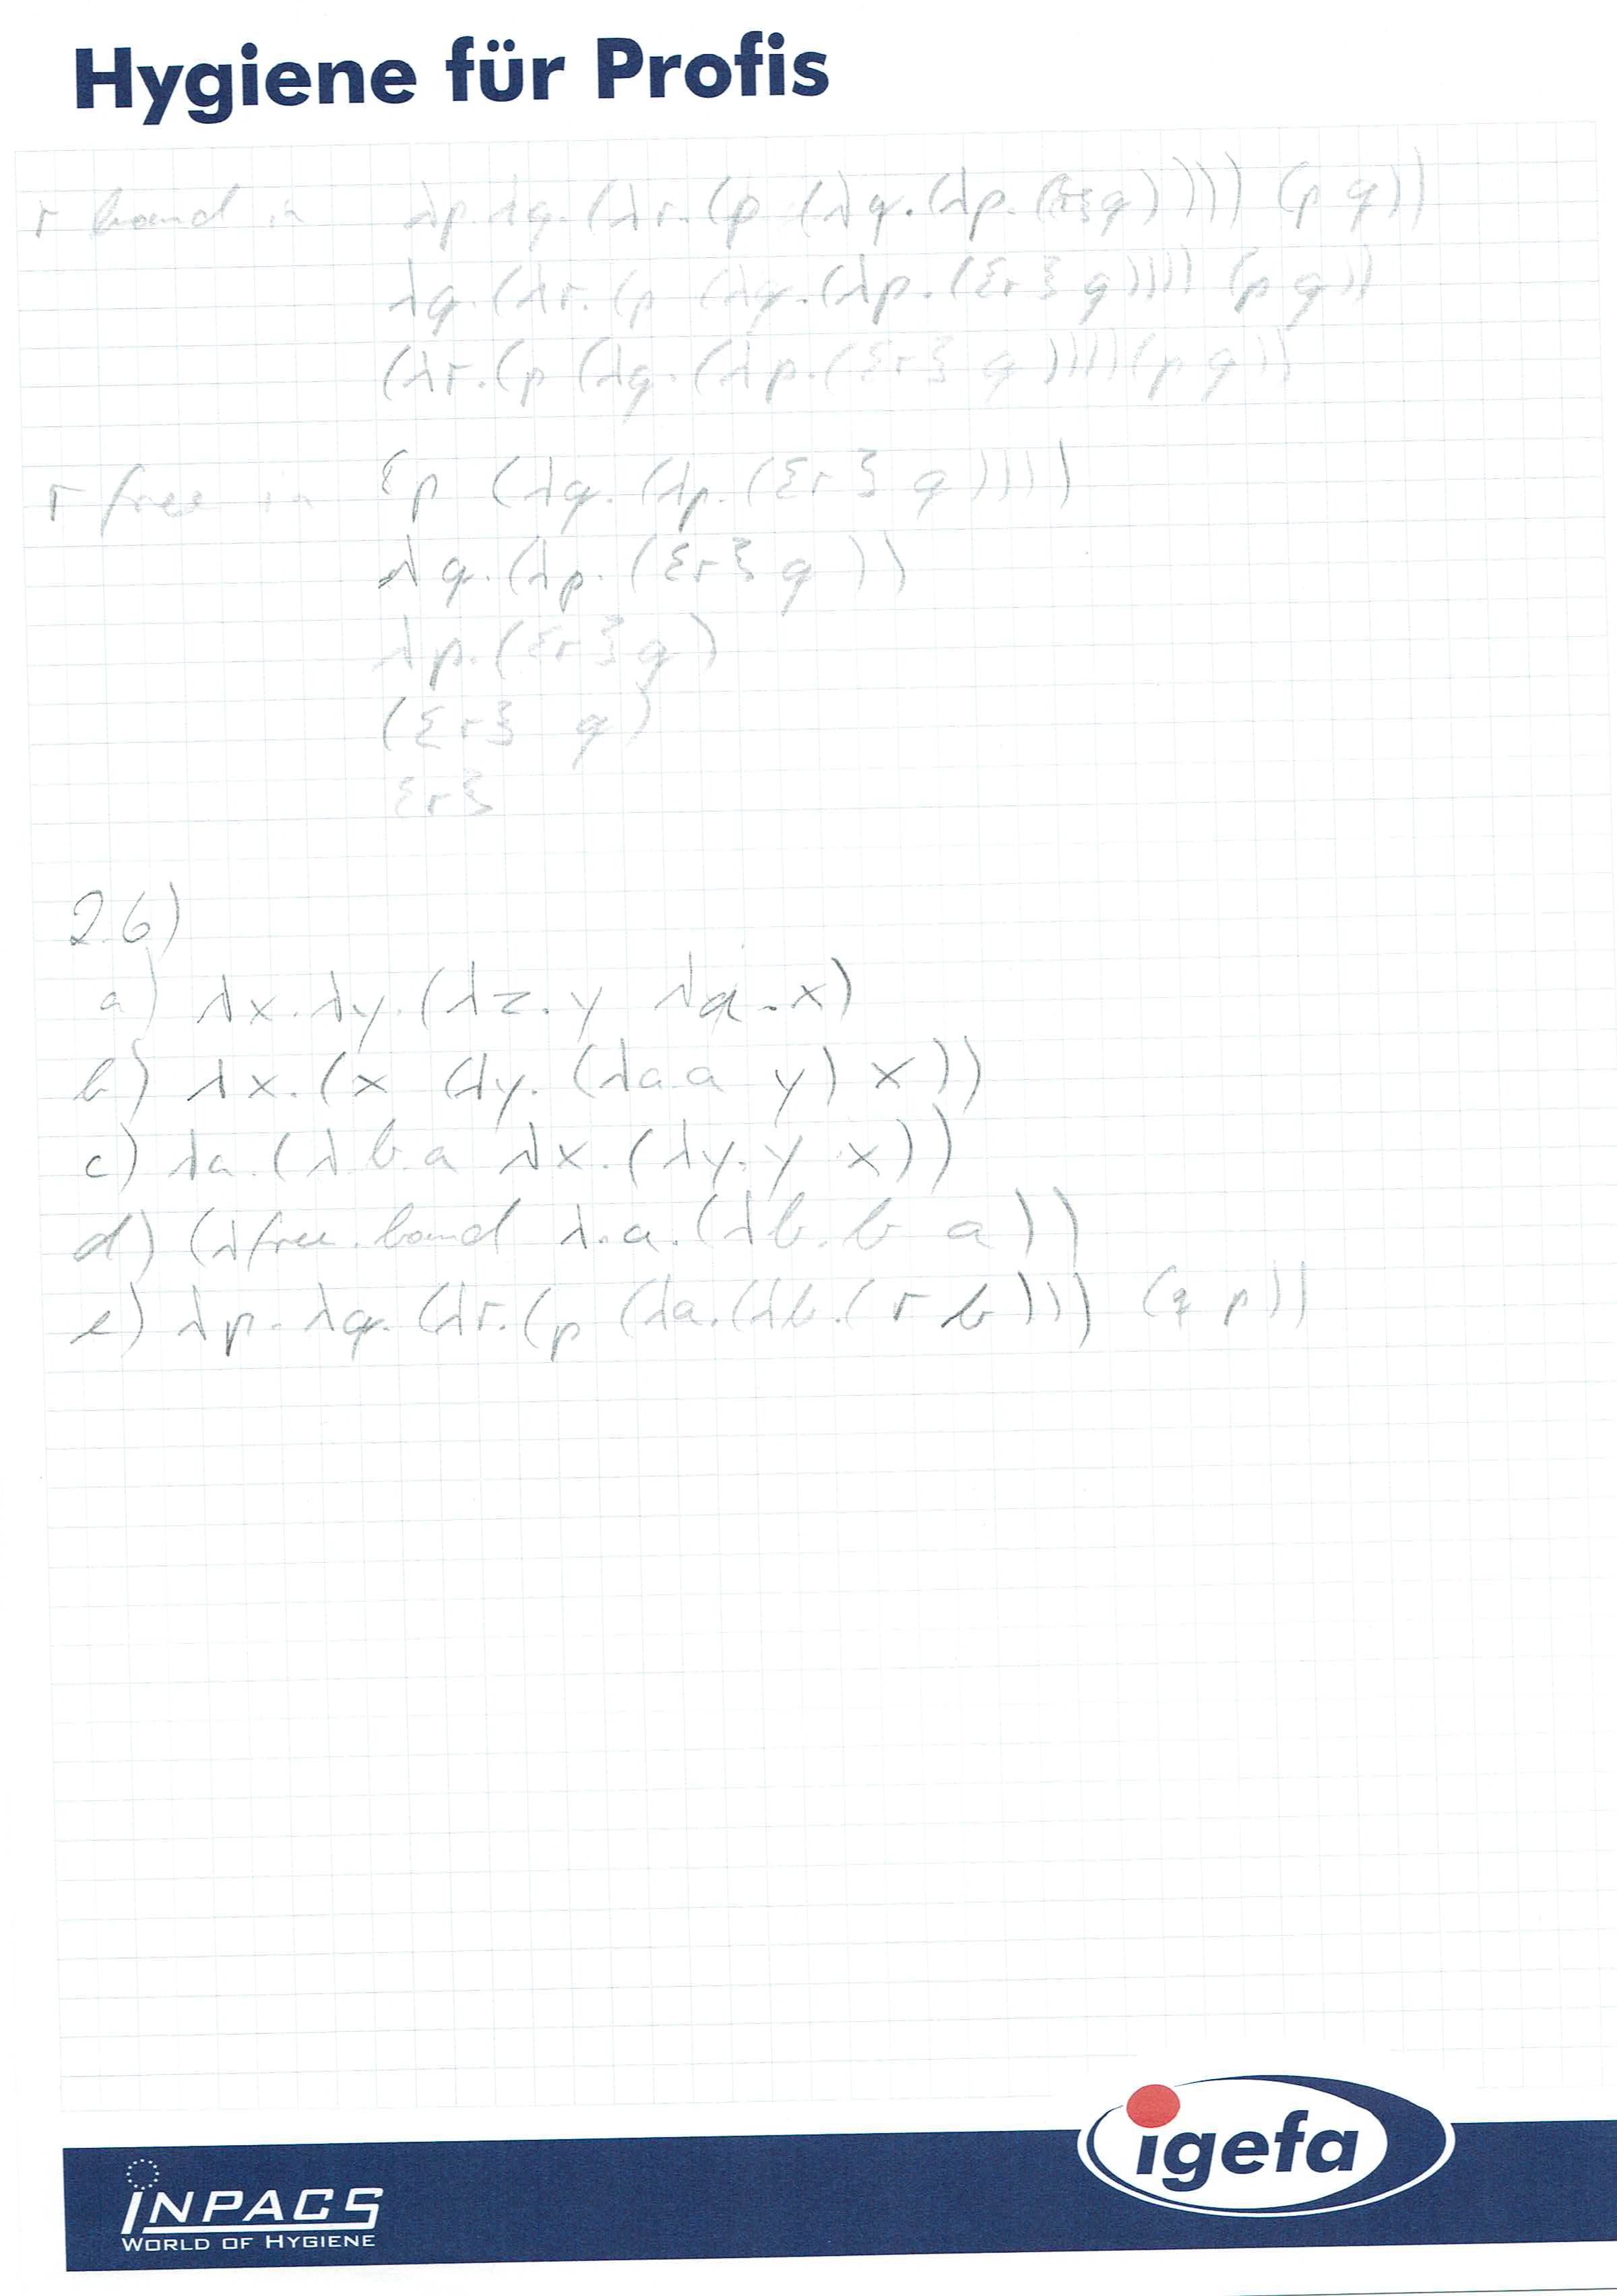 Hygiene für Profis
r bound in λp.λq.(λr.(p (λq.(λp.({r} q)))) (p q))
λq.(λr.(p (λq.(λp.({r} q)))) (p q))
(λr.(p (λq.(λp.({r} q))))(p q))
r free in (p (λq.(λp.({r} q))))
λq.(λp.({r} q))
λp.({r} q)
({r} q)
{r}
2.6)
a) λx.λy.(λz.y λa.x)
b) λx.(x (λy.(λa.a y) x))
c) λa.(λb.a λx.(λy.y x))
d) (λfree.bound λ.a.(λb.b a))
e) λp.λq.(λr.(p (λa.(λb.(r b)))) (q p))
igefa
INPACS
WORLD OF HYGIENE